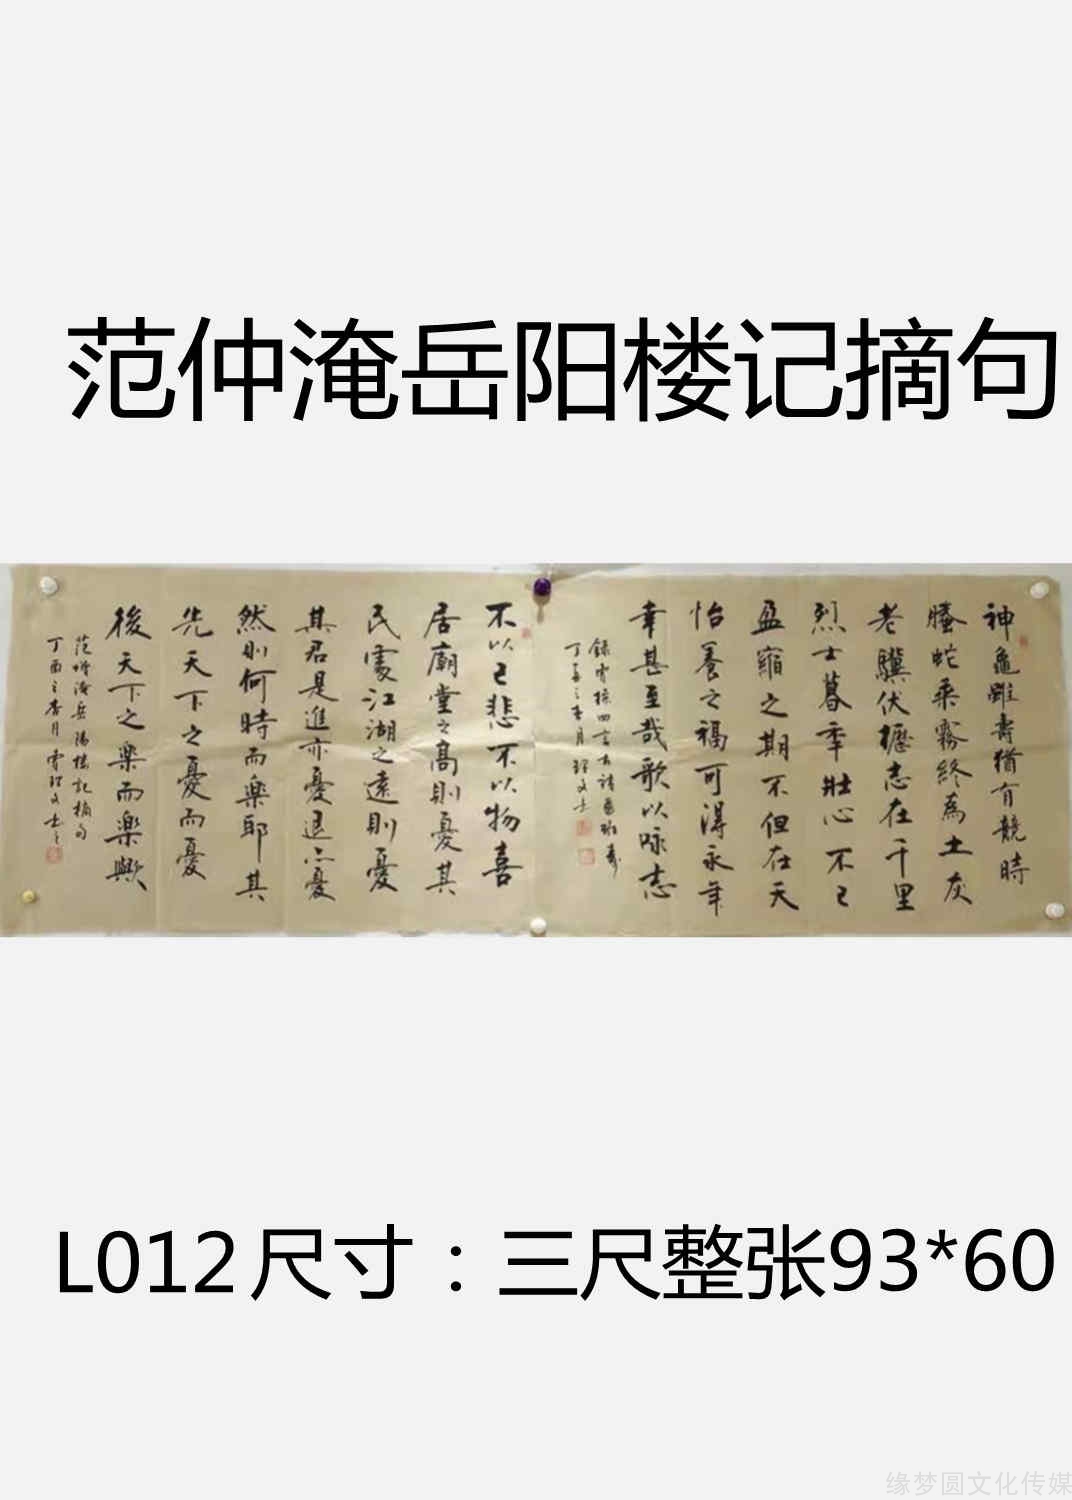 范仲淹岳阳楼记摘句
神龜雖壽猶有競時
騰蛇乘霧終為土灰
老驥伏櫪志在千里
烈士暮年壯心不已
盈縮之期不但在天
怡養之福可得永年
幸甚至哉歌以咏志
錄曹操四言古詩
不以己悲不以物喜
居廟堂之高則憂其
民處江湖之遠則憂
其君是進亦憂退亦憂
然則何時而樂耶其
先天下之憂而憂
後天下之樂而樂歟
范仲淹岳陽樓記摘句
丁酉之杏月
L012尺寸：三尺整张93*60
缘梦圆文化传媒